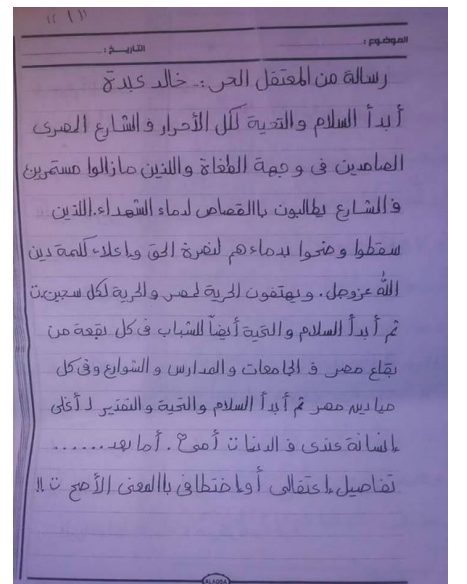 ((١))
الموضوع : التاريخ :
رسالة من المعتقل الحر :. خالد عبدة
أبدأ السلام والتحية لكل الأحرار فـ الشارع المصرى
الصامدين فى وجهة الطغاة واللذين مازالوا مستمرين
فـ الشارع يطالبون باالقصاص لدماء الشهداء. اللذين
سقطوا وضحوا بدماءهم لنصرة الحق وإعلاء كلمة دين
الله عزوجل . ويهتفون الحرية لمصر والحرية لكل سجين
ثم أبدأ السلام والتحية أيضاً للشباب فى كل بقعة من
بقاع مصر فـ الجامعات والمدارس و الشوارع وفى كل
ميادين مصر ثم أبدأ السلام والتحية والتقدير لـ أغلى
إنسانة عندى فـ الدنيا أمى . أما بعد ......
تفاصيل إعتقالى أو إختطافى باالمعنى الأصح !!
ALADBA